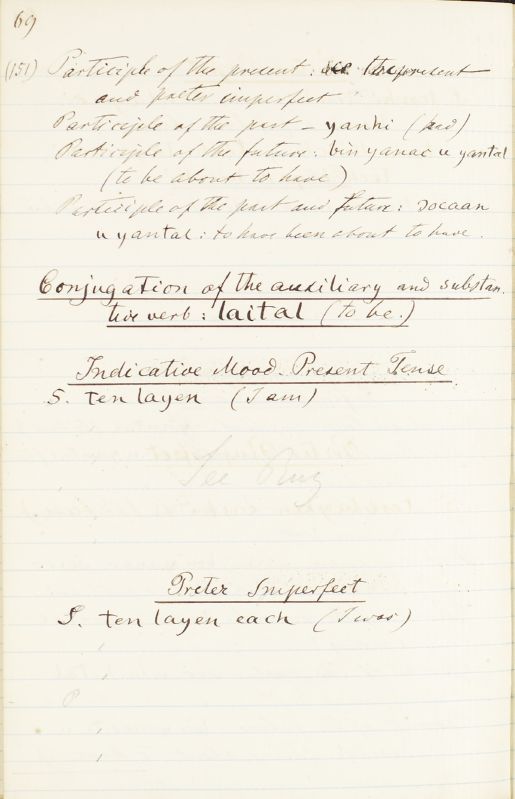 69
(151) Participle of the present: see the present
and preter imperfect
Participle of the past - yanhi (had)
Participle of the future: bin yanac u yantal
(to be about to have)
Participle of the past and future: ɔocaan
u yantal: to have been about to have.
Conjugation of the auxiliary and substan-
tive verb: laital (to be.)
Indicative Mood. Present Tense
S. ten layen (I am)
See
Preter Imperfect
S. ten layen cach (I was)
P